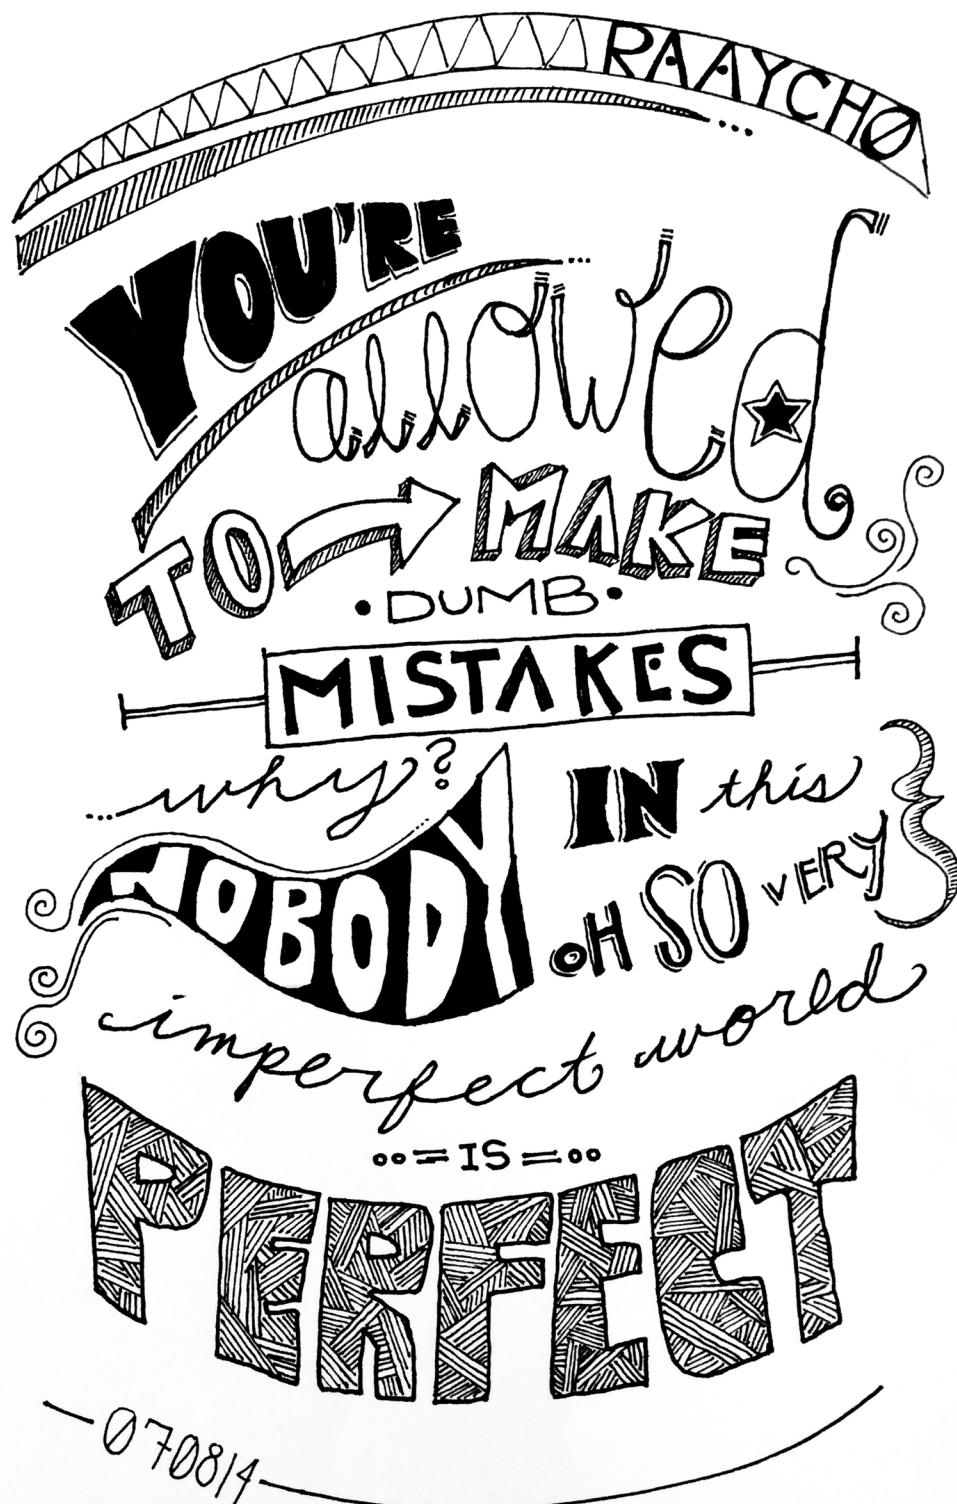 RAAYCHO
YOU'RE
allowed
TO MAKE
DUMB
MISTAKES
...why?
NOBODY
IN this
OH SO VERY
imperfect world
IS
PERFECT
070814